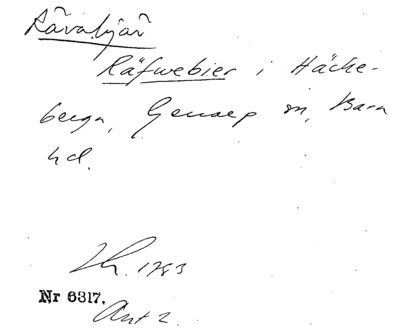 Rävabjär
Räfwebier i Häcke-
berga, Genarp sn, Bara
hd.
1783
Nr 6317.
Ant 2.